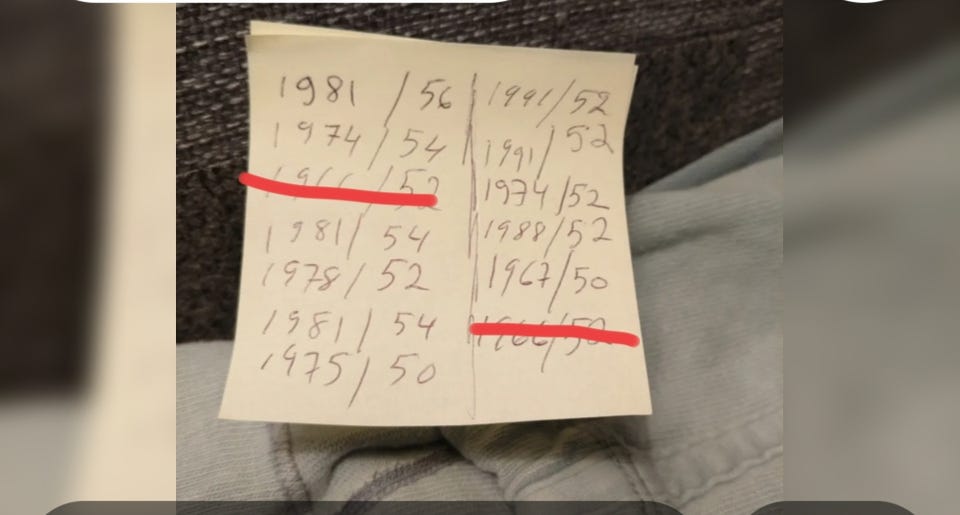 1981 / 56
1974 / 54
1981 / 54
1978 / 52
1981 / 54
1975 / 50
1991 / 52
1991 / 52
1974 / 52
1988 / 52
1967 / 50